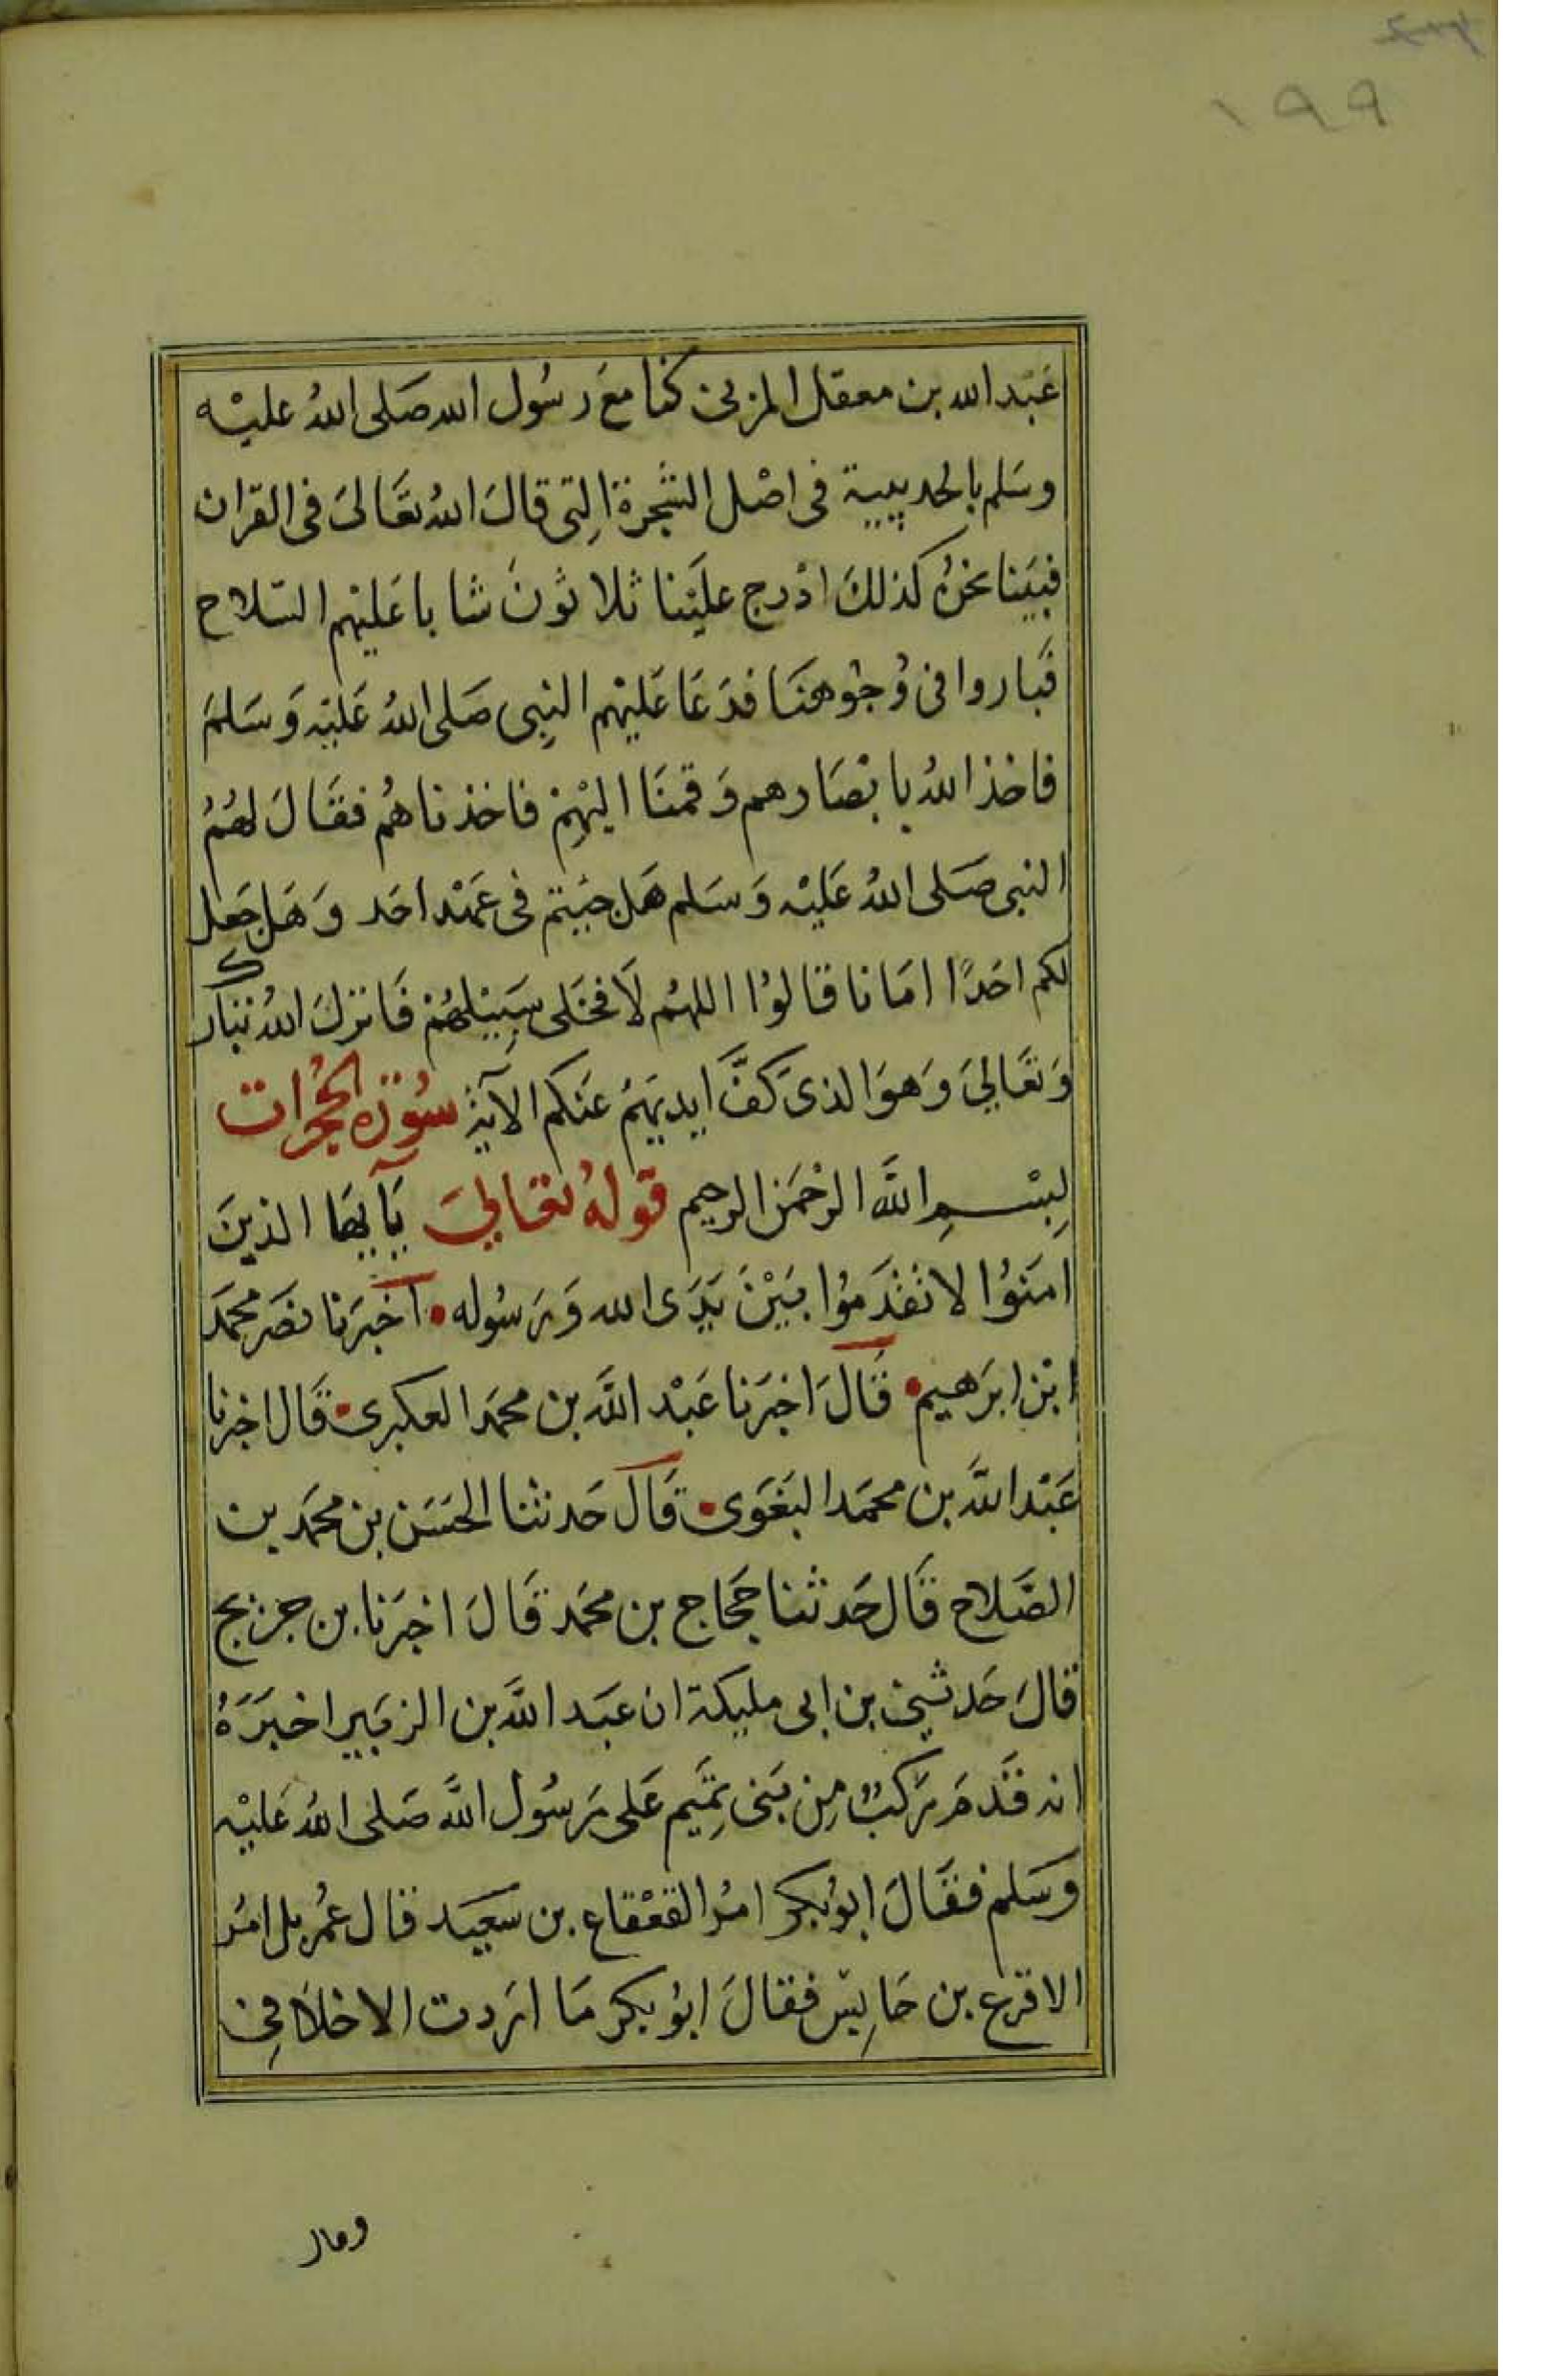 ١٩٩
عَبْد الله بن معقل المزني كنا معَ رسُول الله صَلى اللهُ عليْه
وسَلم بالحديبية في اصْل الشجرة التِي قالَ اللهُ تعَالىَ في القران
فبيَنا نحنُ كذلكَ اذ درج عليَنا ثلاثونَ شابا عَليْهم السّلاح
فَباروا في وُجوُهنَا فدَعَا عَليْهم النبِي صَلى اللهُ عَليْه وَسَلمَ
فاخذ اللهُ بابْصَارهم وَقمنَا اليْهِمْ فاخذناهُم فقَالَ لهُمُ
النبي صَلى اللهُ عَليْه وَسَلم هَل جئيتم في عَهْد احَد وَهَل جَعل
لكم احَدًا امَانا قالوُا اللهُم لاَ فخَلى سَبِيْلهُمْ فَانزلَ اللهُ تبَارك
وَتعَاليَ وَهوَ الذيَ كَفَّ ايديَهمُ عَنكم الآية سُوْرَة الحجُرات
بِسْــمِ اللَّه الرحْمَن الرحِيم قوْلهُ تعَاليَ يَآ ايهَا الذينَ
امَنوُا لا تقدَموُا بَيْنَ يَدَى الله وَرسُوله • آخبَرنا نصَر محمَد
ابْن ابرَهيم • قَالَ اخبَرنا عَبْد اللَّه بن محمَد العكبري • قَال اخبرنا
عَبْد اللَّه بن محمَد البَغَوى • قَالَ حَدثنا الحَسَن بن محمَد بن
الصَّلاح قَال حَدثنا حجَاج بن محمَد قَالَ اخبَرنا بن جريج
قالَ حَدثني بن ابى مليكة ان عبَد اللَّه بن الزبَير اخبَرَهُ
انه قَدمَ رَكبٌ مِن بَني تمِيَم عَلى رَسُول اللَّه صَلى اللهُ عَليْه
وَسَلم فقَالَ ابوُبكر امرُ القعْقاع بن سَعيَد قال عُمر بل امرُ
الاقرع بن حَابِسْ فقالَ ابوُ بكر مَا ارَدت الا خلاَفِي
وقال